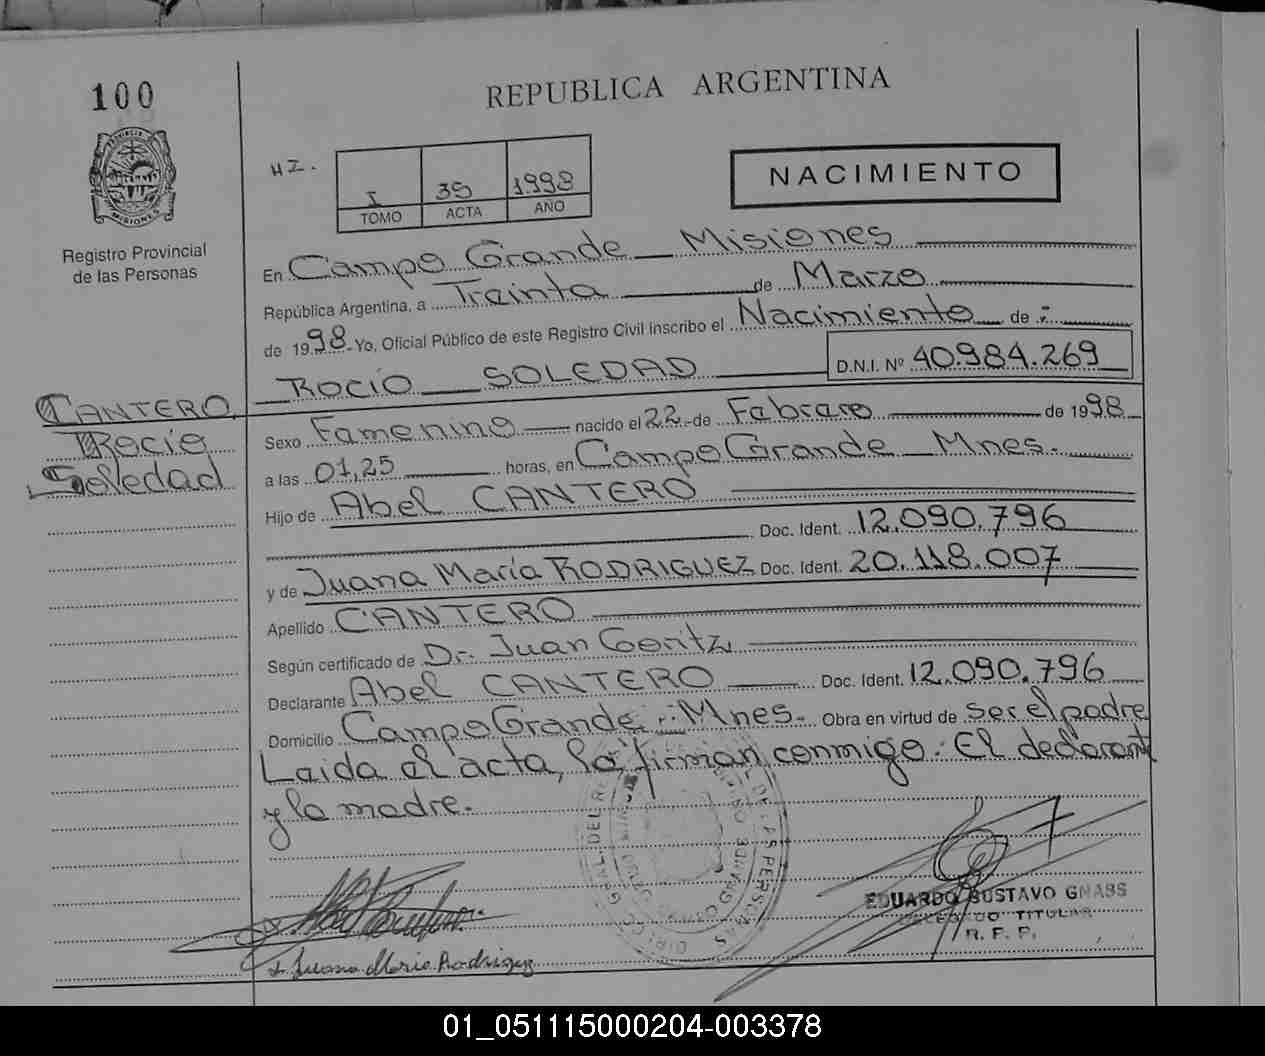 100
REPUBLICA ARGENTINA
PROVINCIA
MISIONES
Registro Provincial
de las Personas
HZ.
I 35 1998
TOMO ACTA AÑO
NACIMIENTO
En Campo Grande Misiones
República Argentina, a Treinta de Marzo
de 1998 Yo, Oficial Público de este Registro Civil inscribo el Nacimiento de :
ROCIO SOLEDAD D.N.I. Nº 40.984.269
CANTERO
Rocio
Soledad
Sexo Femenino nacido el 22 de Febrero de 1998
a las 01,25 horas, en Campo Grande Mnes.
Hijo de Abel CANTERO
Doc. Ident. 12.090.796
y de Juana María RODRIGUEZ Doc. Ident. 20.118.007
Apellido CANTERO
Según certificado de Dr. Juan Goritz
Declarante Abel CANTERO Doc. Ident. 12.090.796
Domicilio Campo Grande - Mnes. Obra en virtud de ser el padre
Leida el acta, la firman conmigo: El declarant
y la madre.
EDUARDO GUSTAVO GNASS
DELEGADO TITULAR
R. P. P.
Juana Maria Rodriguez
01_051115000204-003378